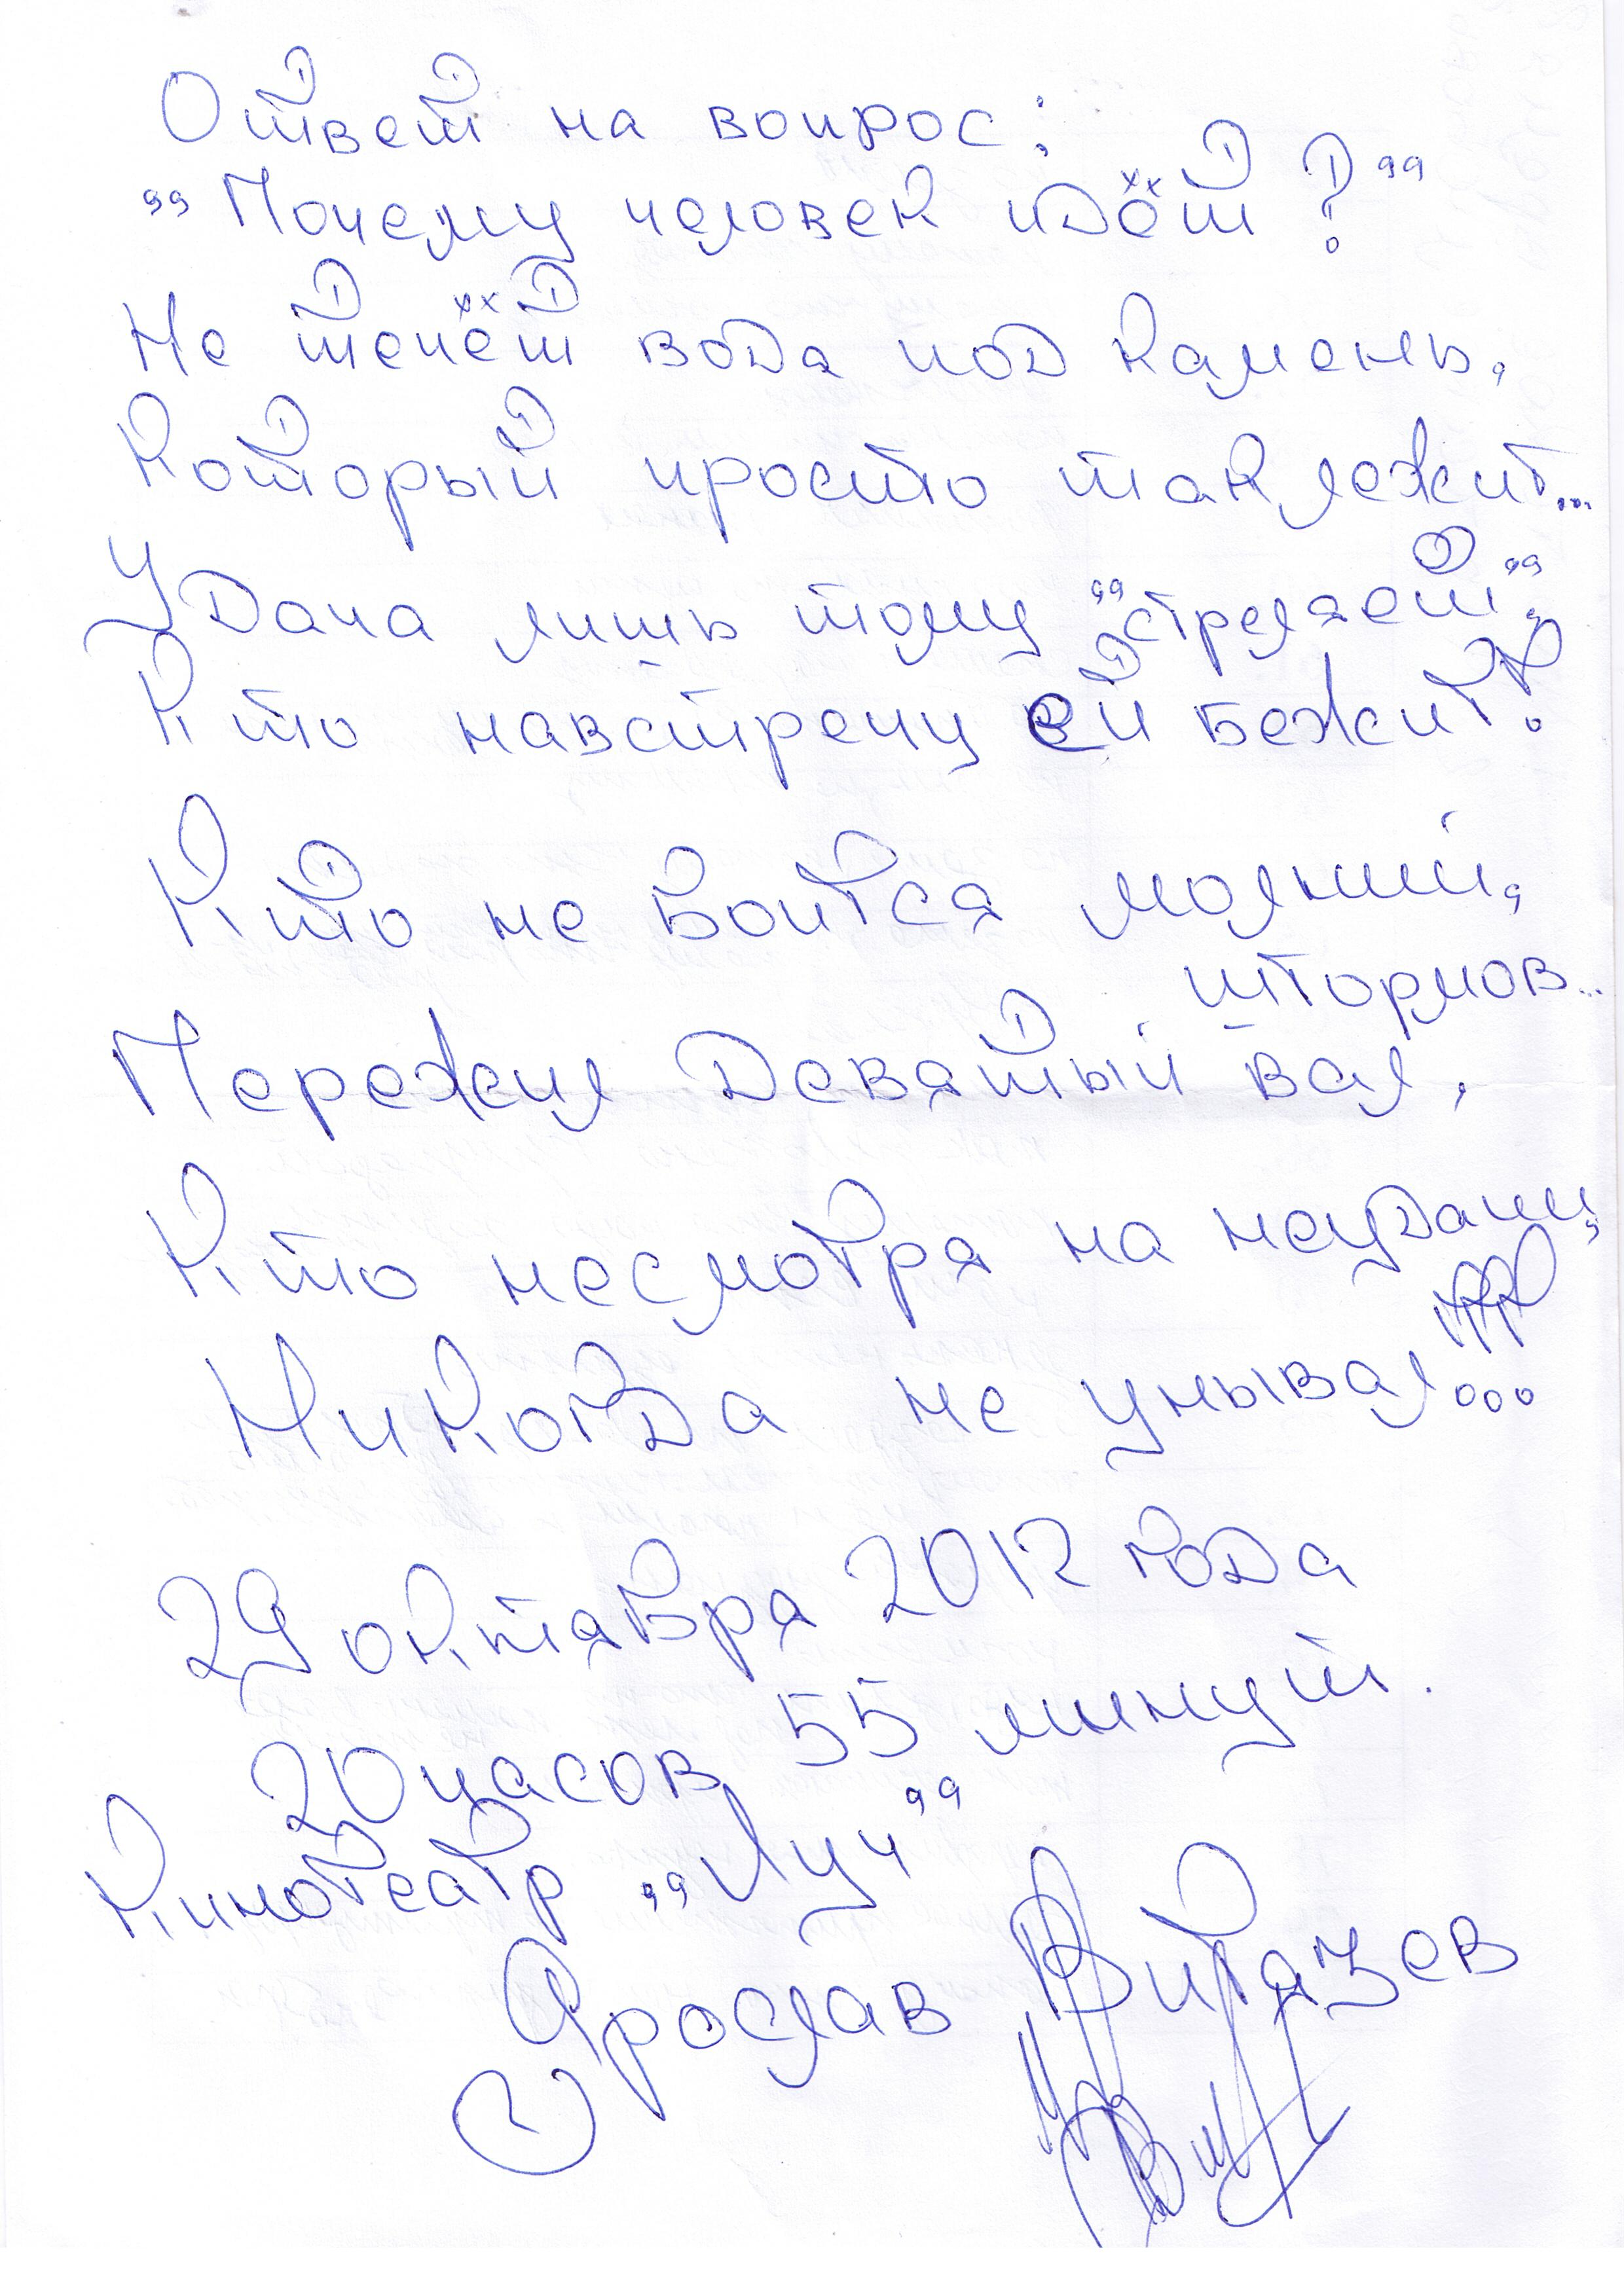 Ответ на вопрос:
„Почему человек идёт?"
Не течёт вода под камень,
Который просто так лежит...
Удача лишь тому „стреляет",
Кто навстречу ей бежит!
Кто не боится молний,
штормов...
Пережил Девятый вал,
Кто несмотря на неудачи,
Никогда не унывал!!!
29 октября 2012 года
20 часов 55 минут.
Кинотеатр „Луч"
Ярослав Витязев